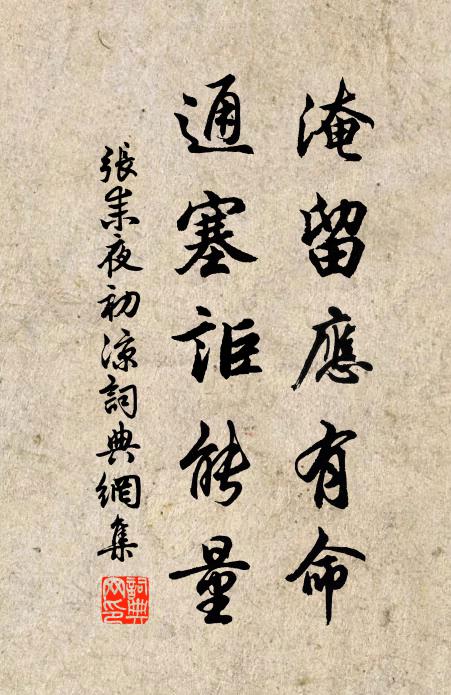 淹留應有命
通塞詎能量
張耒夜初涼詞典網集
詞典網印